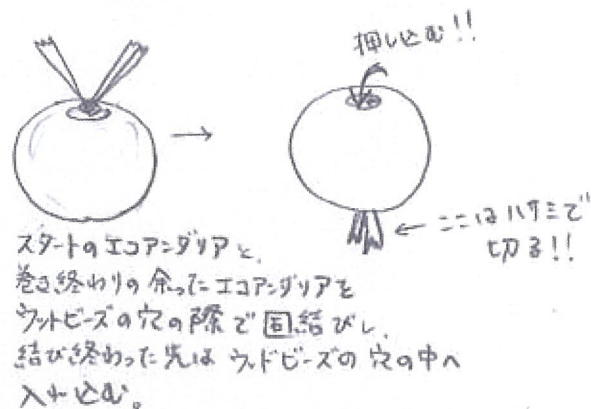 押し込む!!
← ここはハサミで
切る!!
スタートのエコアンダリアと、
巻き終わりの余ったエコアンダリアを
ウットビーズの穴の際で固結びし、
結び終わった先はウッドビーズの穴の中へ
入れ込む。